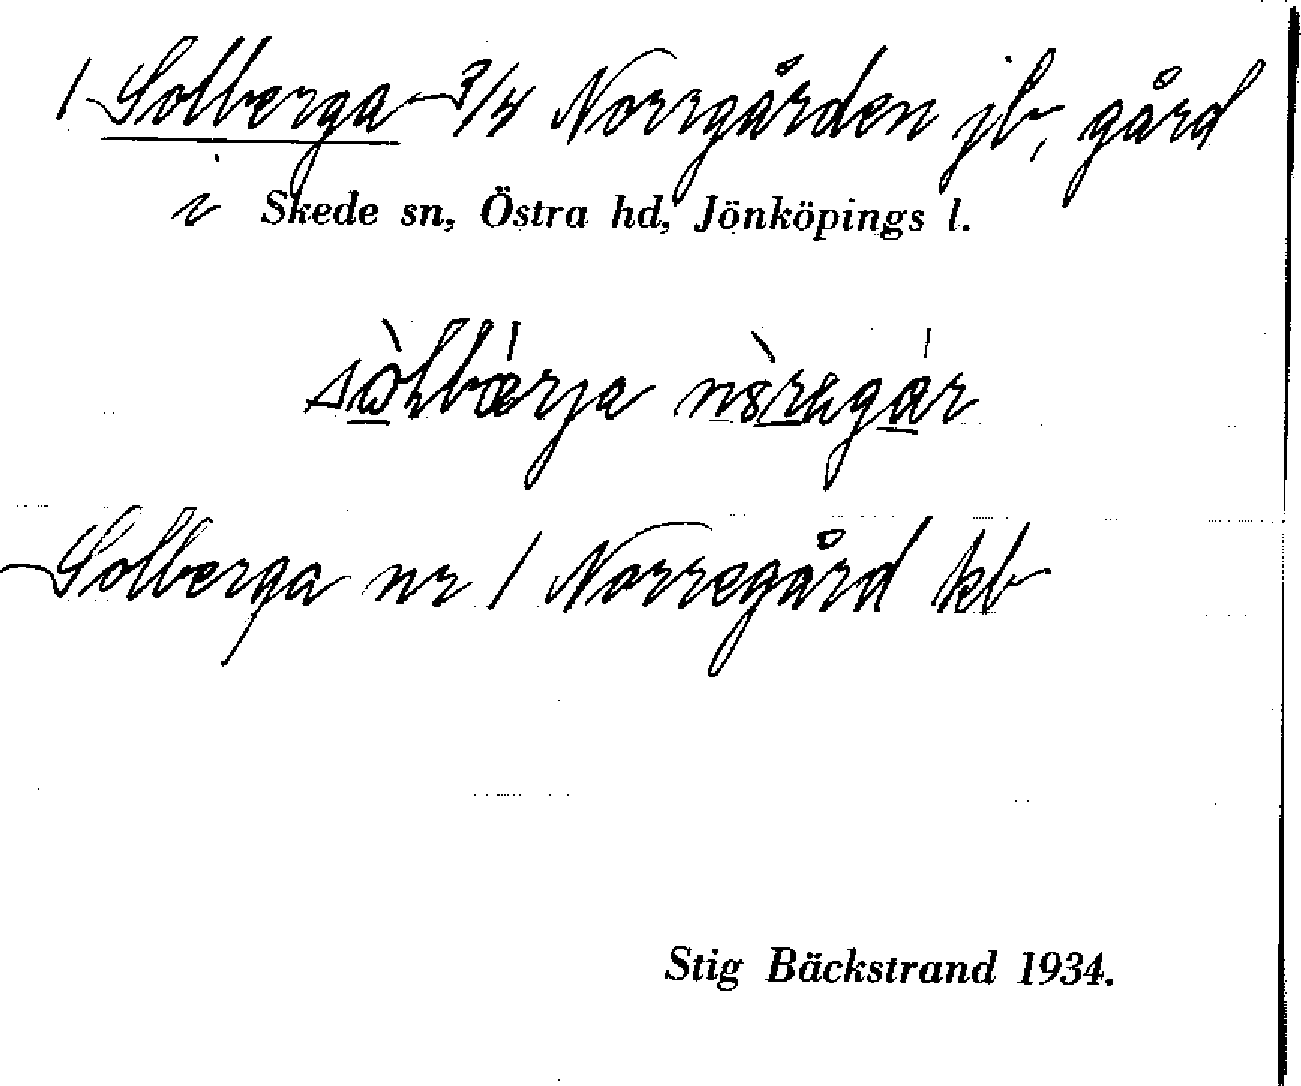 1 Solberga 3/4 Norrgården jb, gård
i Skede sn, Östra hd, Jönköpings l.
Solberga nr 1 Norregård kb
Stig Bäckstrand 1934.